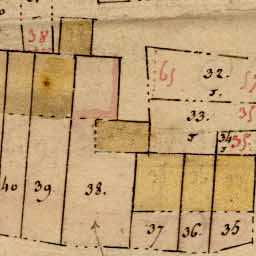 38
65 32. 57
33. 35
34 35.
40 39. 38.
37 36. 35